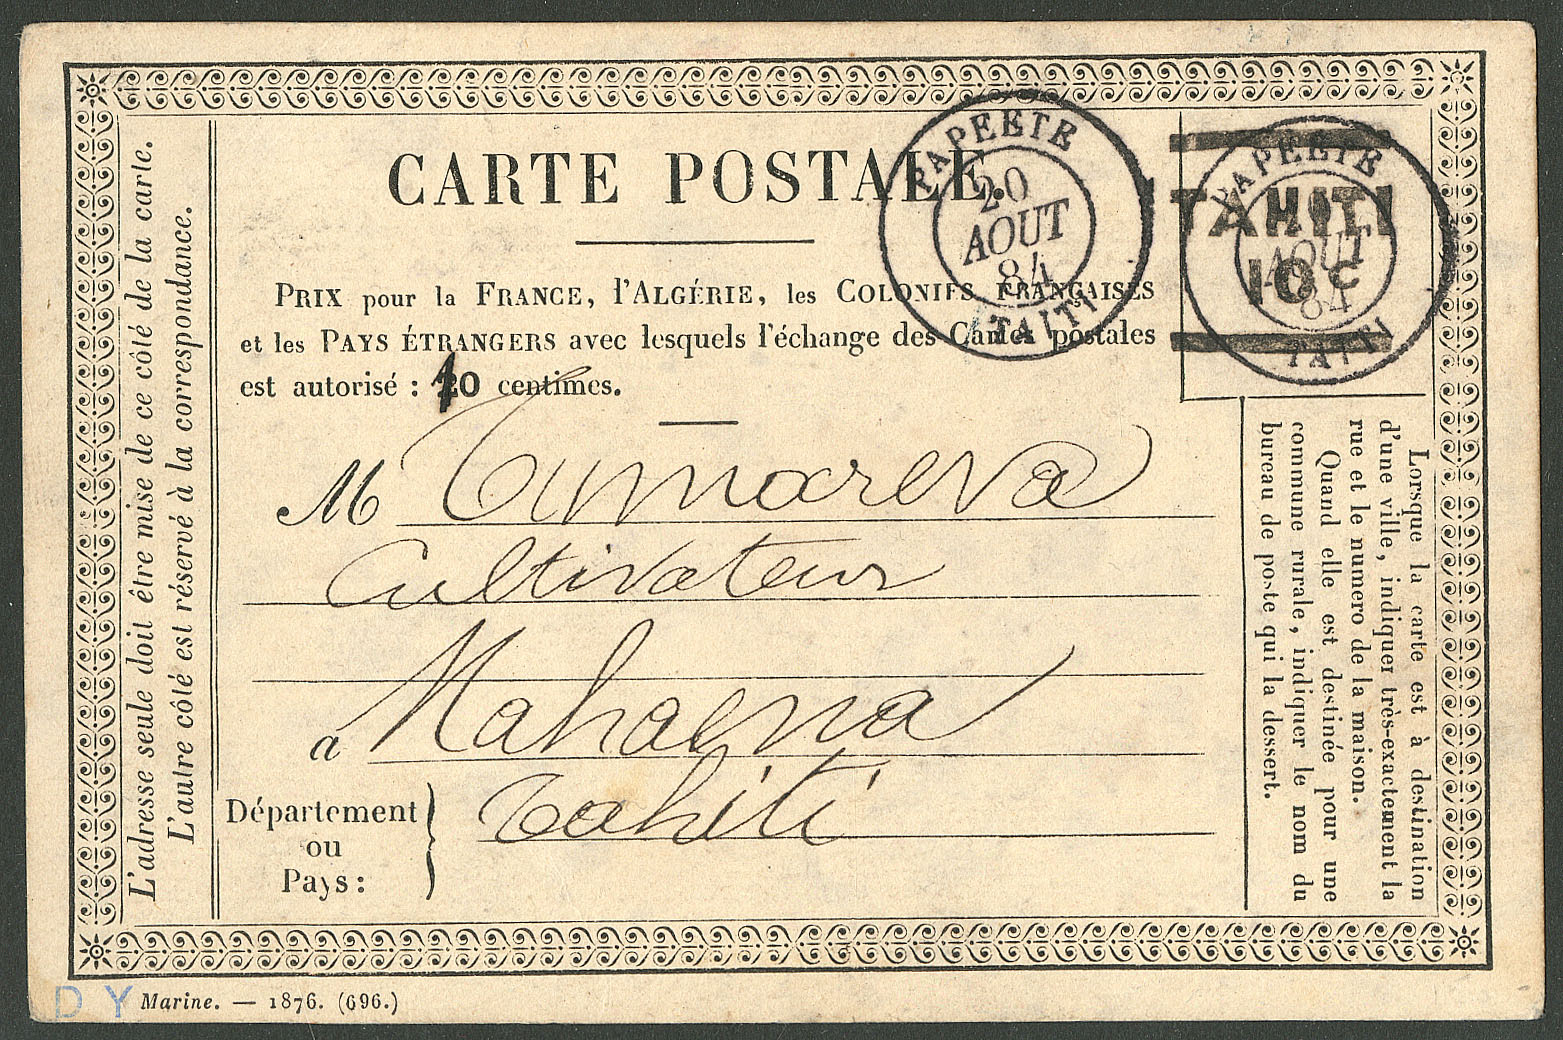 CARTE POSTALE.
PAPEETE
20
AOUT
84
TAITI
PAPEETE
AOUT
84
TAITI
TAHITI
10 c
PRIX pour la FRANCE, l'ALGÉRIE, les COLONIES FRANÇAISES
et les PAYS ÉTRANGERS avec lesquels l'échange des Cartes postales
est autorisé : 10 centimes.
M Tumareva
Cultivateur
a Mahaena
Département
ou
Pays :
Tahiti
L'adresse seule doit être mise de ce côté de la carte.
L'autre côté est réservé à la correspondance.
Lorsque la carte est à destination
d'une ville, indiquer très-exactement la
rue et le numero de la maison.
Quand elle est destinée pour une
commune rurale, indiquer le nom du
bureau de poste qui la dessert.
D Y
Marine. — 1876. (696.)